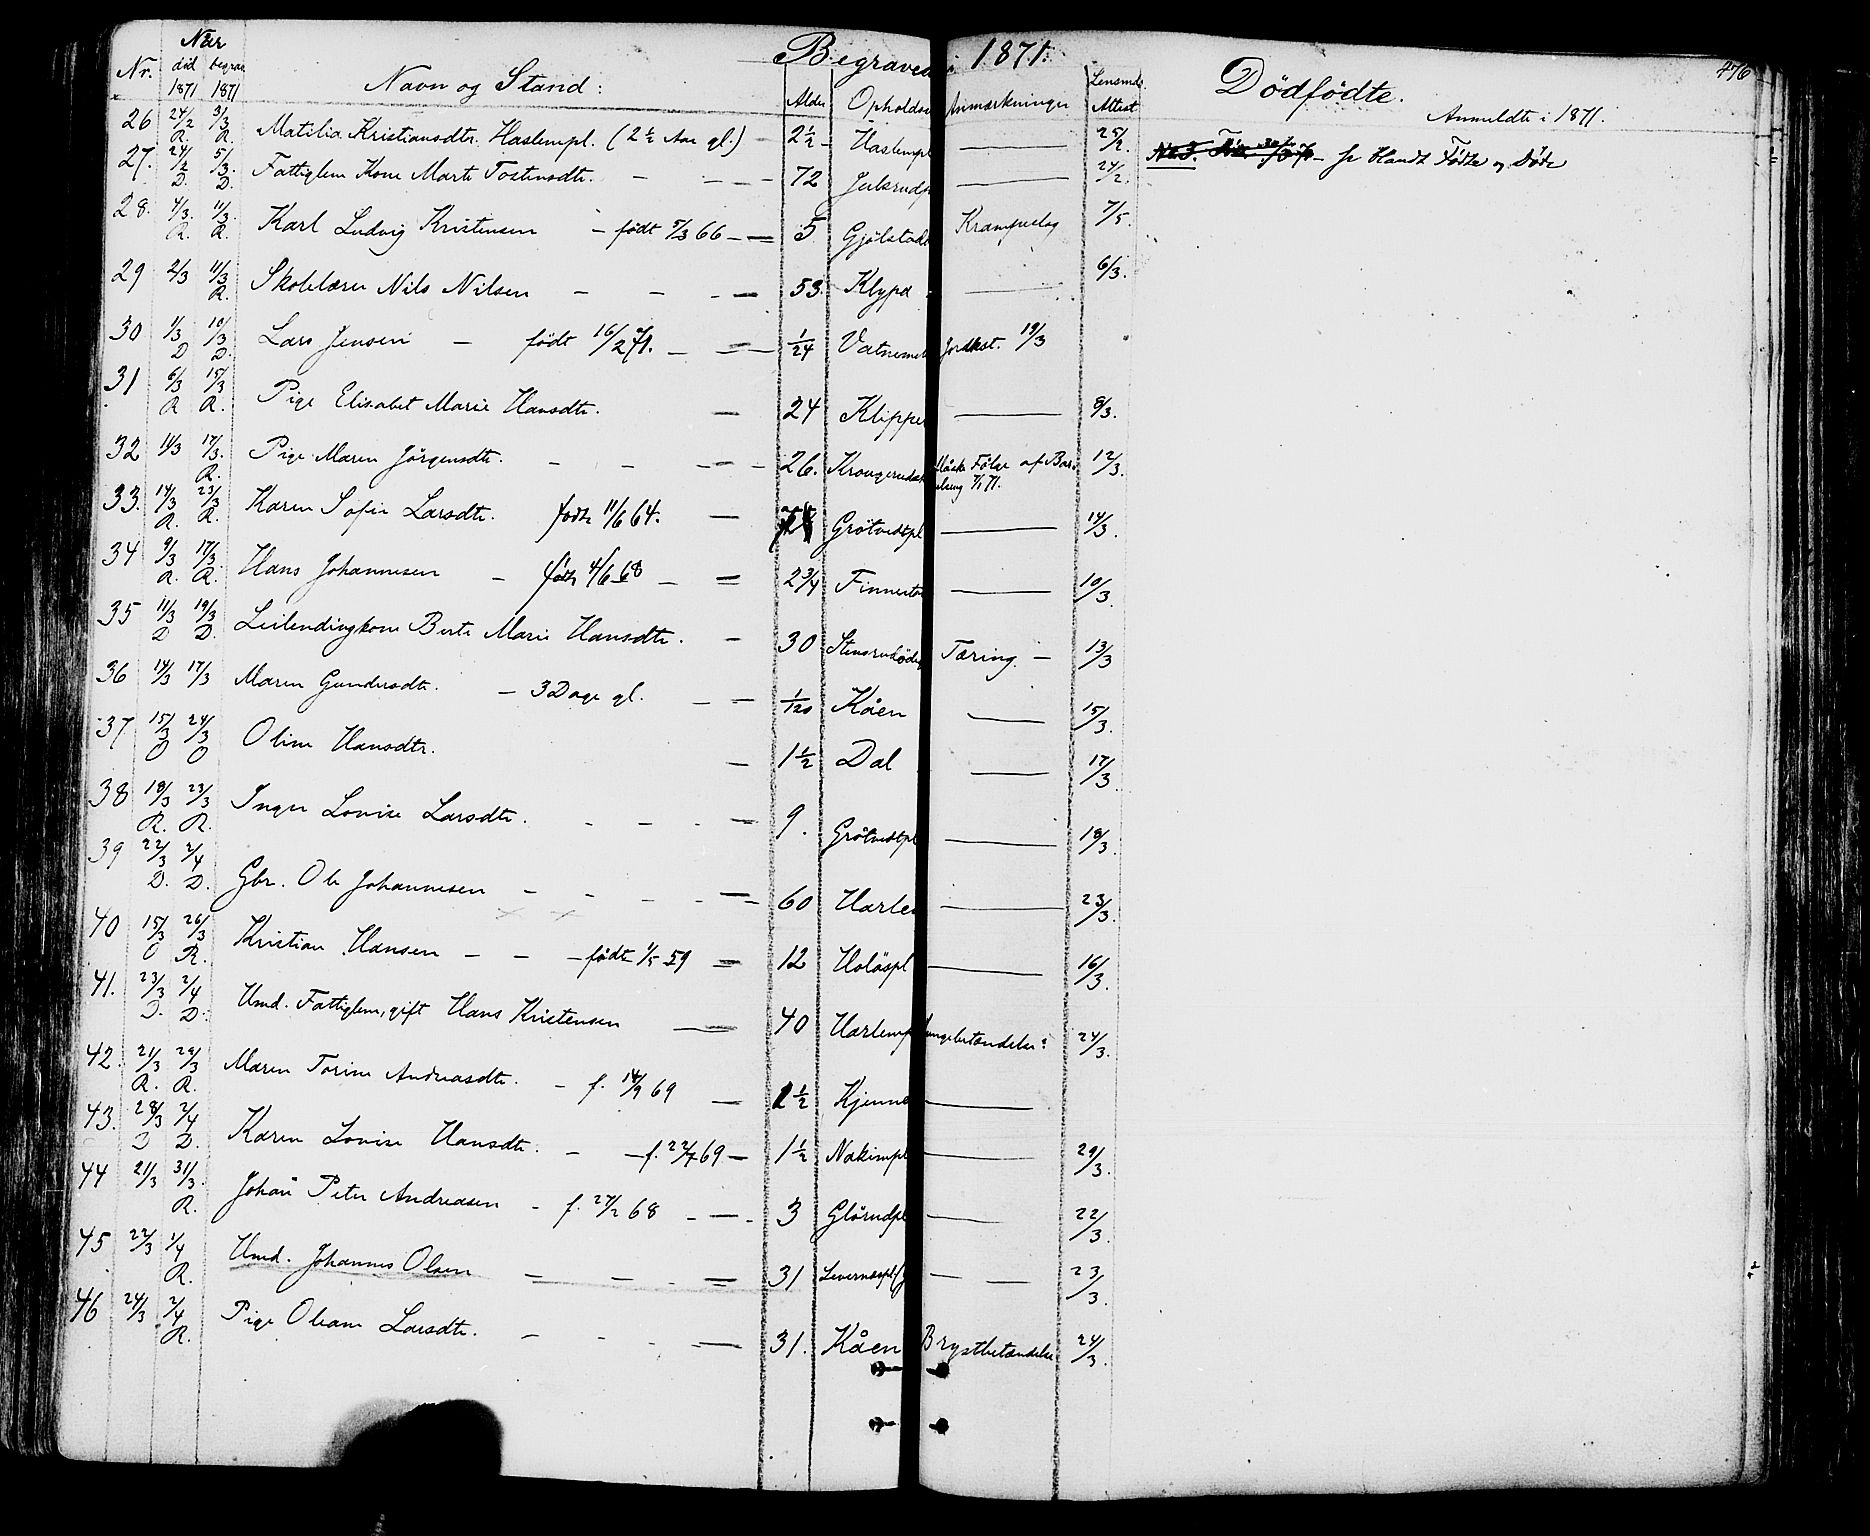 Begraved i 1871.
476
Nr. Når död 1871 begrav 1871 Navn og Stand: Alder Opholds Anmærkninger Lensmds Attest
Dödfödte.
Anmeldte i 1871.
26 24/2 R. 3/3 R. Matilia Kristiansdtr. Haslempl. (2½ Aar gl.) – 2½ – Haslempl — 25/2.
bl blandt Födte og Döde
27. 24/2 D. 5/3. D. Fattiglem Kone Marte Tostensdtr. – – – 72 Julsrudp — 27/2.
28. 4/3. R. 11/3. R. Karl Ludvig Kristensen – födt 5/3 66 – 5 Gjölstad Krampeslag 7/5.
29 2/3 11/3 R. Skolelærer Nils Nilsen – – – 53. Klypa — 6/3.
30 1/3 D 10/3 D. Lars Jensen – födt 16/2 71. – 1/24 Vatneme Jordkast. 19/3
31 6/3 R 15/3 R. Pige Elisabet Marie Hansdtr. – 24 Klippe — 8/3.
32 11/3 17/3. R. Pige Maren Jörgensdtr. – – – 26. Krongerudsæ Måsk Fölge af Bar selseng 7/1 71. 12/3.
33. 14/3 R. 23/3 R. Karen Sofie Larsdtr. födt 11/6 64. – Grötvedtpl — 14/3.
34 9/3 R. 17/3. R. Hans Johannesen – födt 4/6 68 – 2¾ Finnerto — 10/3.
35 11/3 D 19/3 D. Leilendingkone Berte Marie Hansdtr. – 30 Stensrudöde Tæring. – 13/3
36 14/3 17/3 Maren Gundersdtr. – 3 Dage gl. – – 1/120 Kåen — 15/3.
37 15/3 O 24/3 O Oline Hansdtr. – 1½ Dal — 17/3.
38 18/3 R. 23/3 R. Inger Lovise Larsdtr. – – – 9. Grötvedtpl — 18/3.
39 22/3 D. 2/4 D. Gbr. Ole Johannesen – – – 60 Harle — 23/3.
40 15/3 O 26/3 R. Kristian Hansen – – – födt 1/5 59 – 12 Holöspl — 16/3.
41. 23/3 D. 2/4 D. Hmd. Fattiglem, gift Hans Kristensen — 40 Harlemp ungebetændelse? 24/3.
42. 21/3 R. 29/3 R. Maren Torine Andreasdtr. – f. 14/9 69 – 1½ Kjenne —
43. 28/3 D 2/4 D. Karen Lovise Hansdtr. – – f. 22/7 69 – 1½ Nakimpl — 29/3.
44 21/3 31/3. R. Johan Peter Andreasen – f. 27/2 68 – – – 3 Glörudpl — 22/3.
45 22/3 1/4 R. Hmd. Johannes Olsen – – – 31 Levernæspl — — 23/3.
46 24/3 2/4 R. Pige Oleane Larsdtr. – – – 31. Kåen Brystbetændelse 24/3.